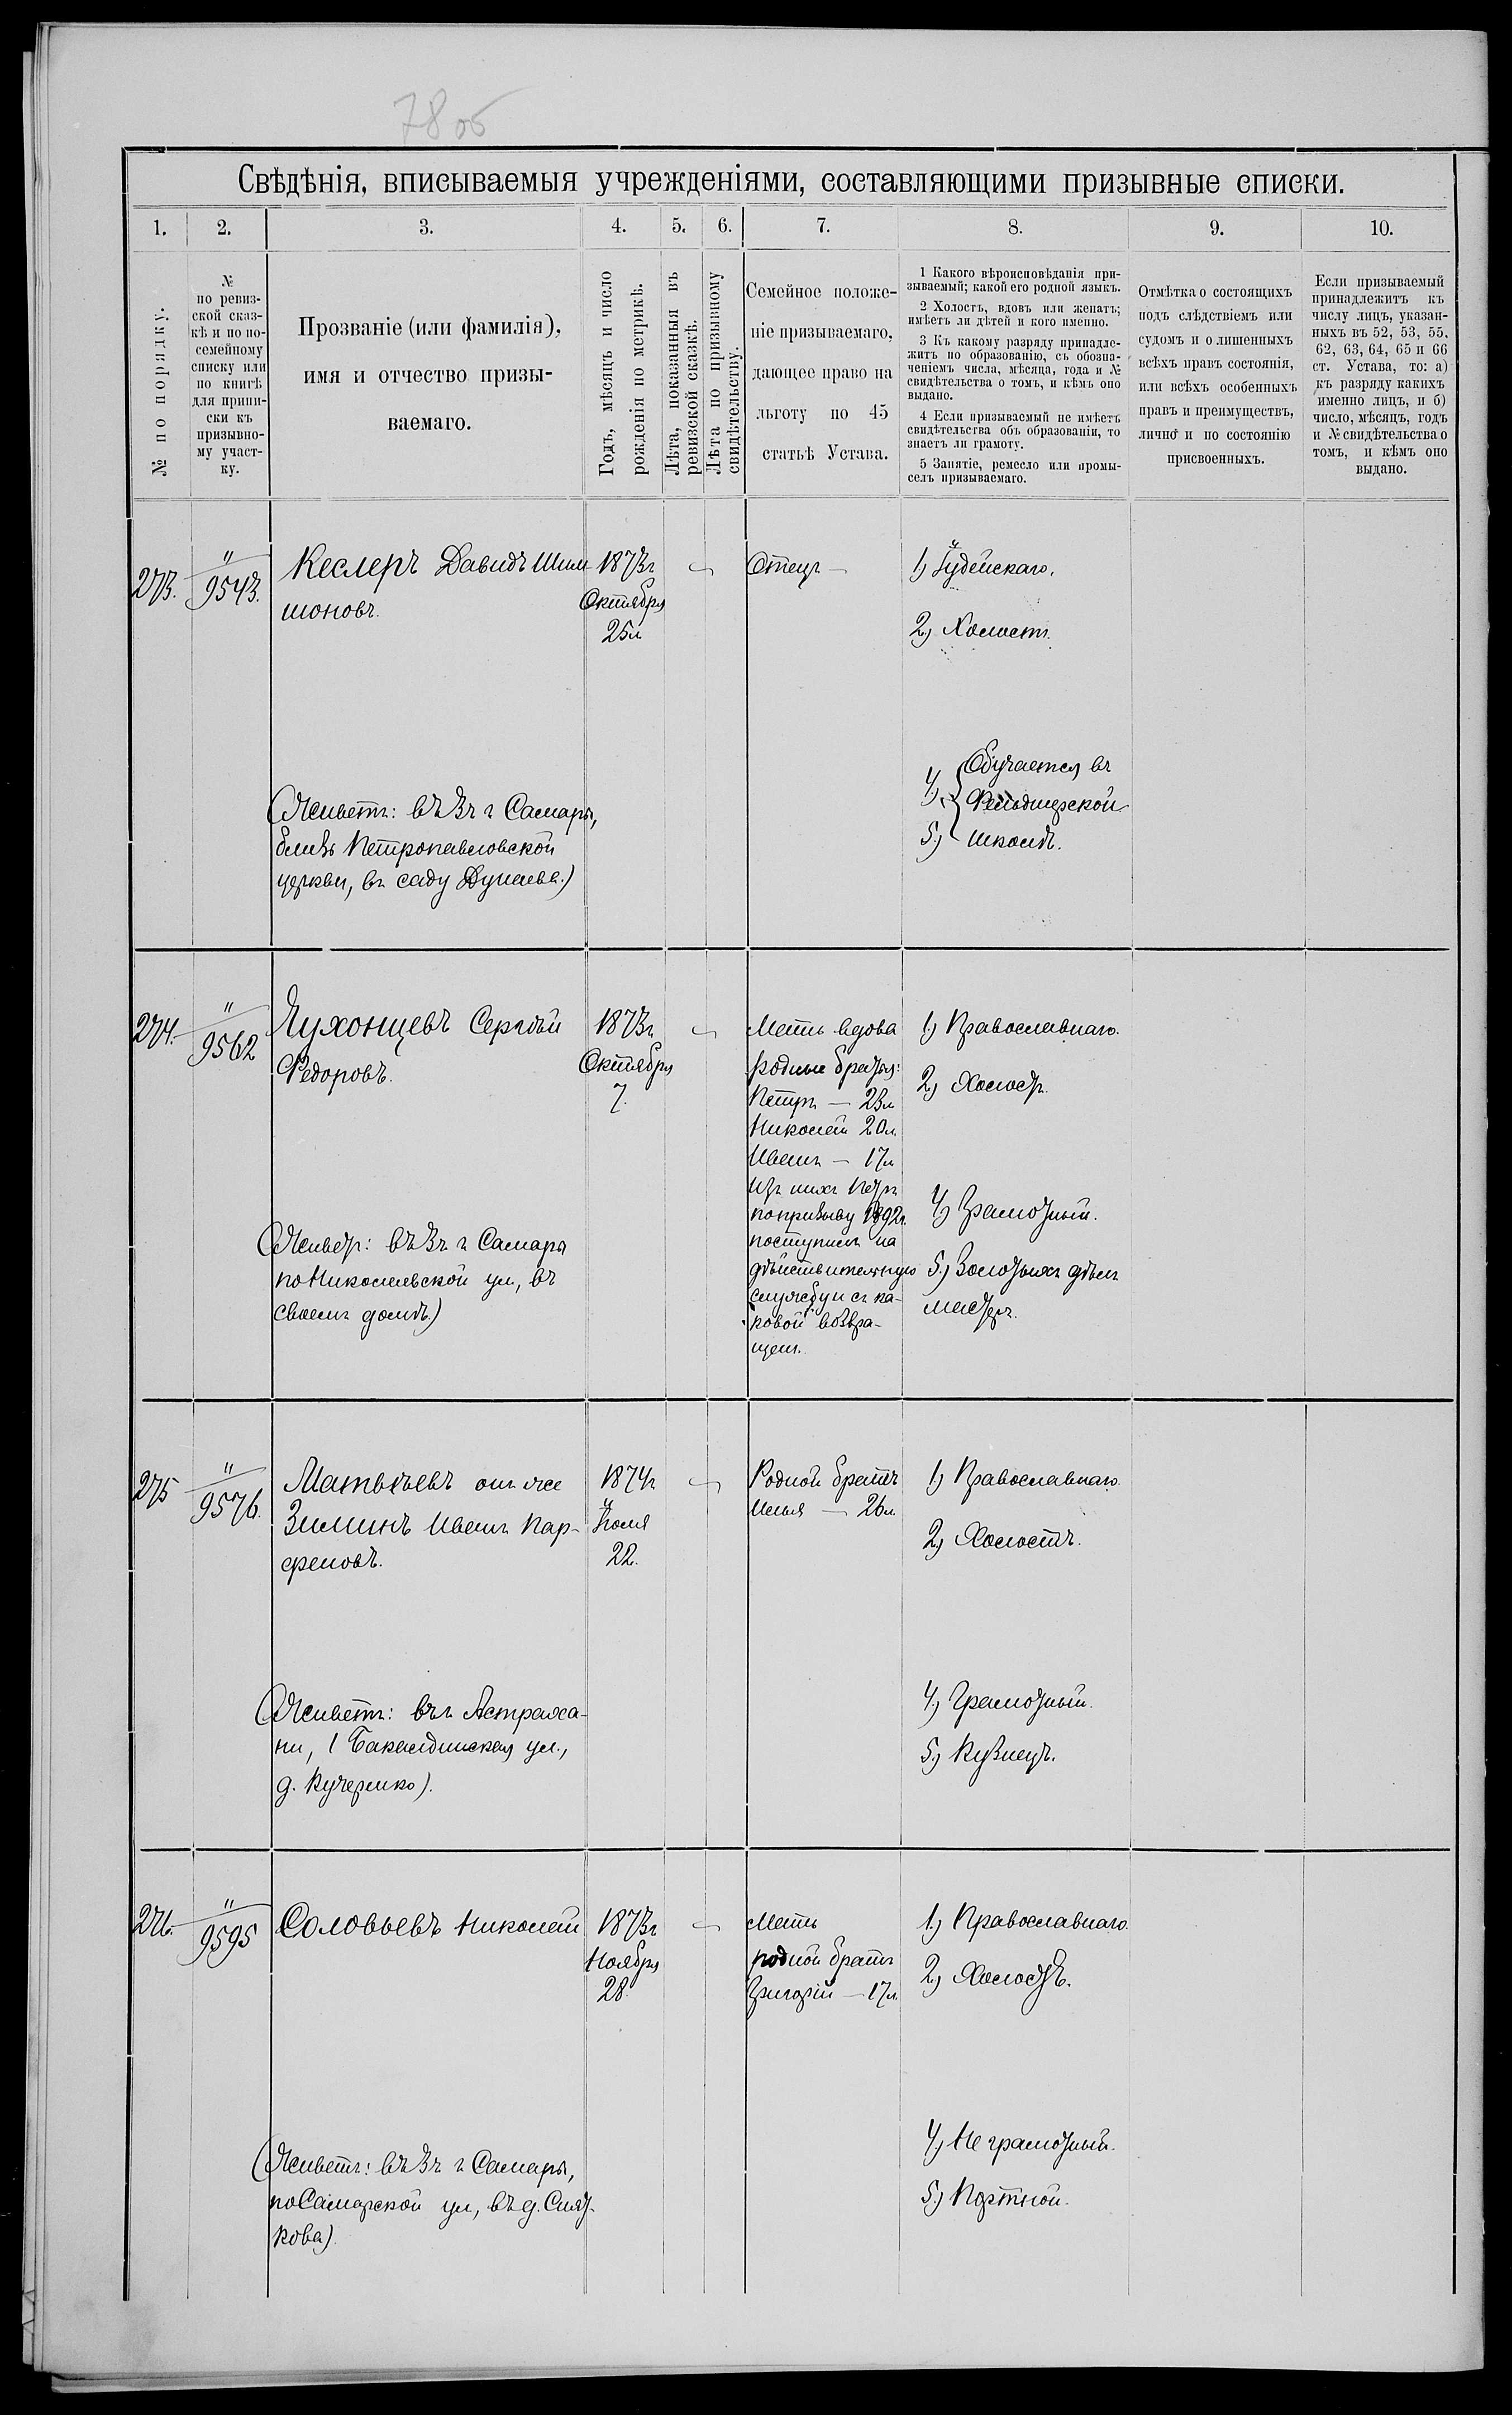 78 об
Свѣдѣнія, вписываемыя учрежденіями, составляющими призывные списки.
1. 2. 3. 4. 5. 6. 7. 8. 9. 10.
№ по порядку.
№
по ревиз-
ской сказ-
кѣ и по по-
семейному
списку или
по книгѣ
для припи-
ски къ
призывно-
му участ-
ку.
Прозваніе (или фамилія),
имя и отчество призы-
ваемаго.
Годъ, мѣсяцъ и число
рожденія по метрикѣ.
Лѣта, показанныя въ
ревизской сказкѣ.
Лѣта по призывному
свидѣтельству.
Семейное положе-
ніе призываемаго,
дающее право на
льготу по 45
статьѣ Устава.
1 Какого вѣроисповѣданія при-
зываемый; какой его родной языкъ.
2 Холостъ, вдовъ или женатъ;
имѣетъ ли дѣтей и кого именно.
3 Къ какому разряду принадле-
житъ по образованію, съ обозна-
ченіемъ числа, мѣсяца, года и №
свидѣтельства о томъ, и кѣмъ оно
выдано.
4 Если призываемый не имѣетъ
свидѣтельства объ образованіи, то
знаетъ ли грамоту.
5 Занятіе, ремесло или промы-
селъ призываемаго.
Отмѣтка о состоящихъ
подъ слѣдствіемъ или
судомъ и о лишенныхъ
всѣхъ правъ состоянія,
или всѣхъ особенныхъ
правъ и преимуществъ,
лично и по состоянію
присвоенныхъ.
Если призываемый
принадлежитъ къ
числу лицъ, указан-
ныхъ въ 52, 53, 55,
62, 63, 64, 65 и 66
ст. Устава, то: а)
къ разряду какихъ
именно лицъ, и б)
число, мѣсяцъ, годъ
и № свидѣтельства о
томъ, и кѣмъ оно
выдано.
273.
"
9543.
Кеслеръ Давидъ Шим-
шоновъ.
(Живетъ: въ 3 ч г Самары,
близъ Петропавловской
церкви, въ саду Дунаева.)
1873 г
Октября
25 ч
Отецъ —
1) Іудейскаго.
2) Холостъ.
4) Обучается въ
Фельдшерской
5) школѣ.
274.
"
9562
Чухонцевъ Сергѣй
Федоровъ.
(Живетъ: въ 3 ч г Самары
по Николаевской ул, въ
своемъ домѣ.)
1873 г
Октября
7.
Мать вдова
родные братья:
Петръ — 23 л
Николай 20 л
Иванъ — 17 л
Изъ нихъ Петръ
по призыву 1892 г.
поступилъ на
дѣйствительную
службу и съ ка-
ковой возвра-
щен.
1) Православнаго.
2) Холостъ.
4) Грамотный.
5) Золотыхъ дѣлъ
мастеръ.
275
"
9576.
Матвѣевъ онъ же
Зиминъ Иванъ Пар-
феновъ.
(Живетъ: въ г Астраха-
ни, 1 Бакалдинская ул.,
д. Кучеренко).
1874 г
Іюля
22.
Родной братъ
Илья — 26 л
1) Православнаго.
2) Холостъ.
4) Грамотный.
5) Кузнецъ.
276.
"
9595
Соловьевъ Николай
(Живетъ: въ 3 ч г Самары,
по Самарской ул, въ д.
1873 г
Ноября
28.
Мать
родной братъ
Григорій — 17 л
1) Православнаго.
2) Холостъ.
4) Не грамотный.
5) Портной.